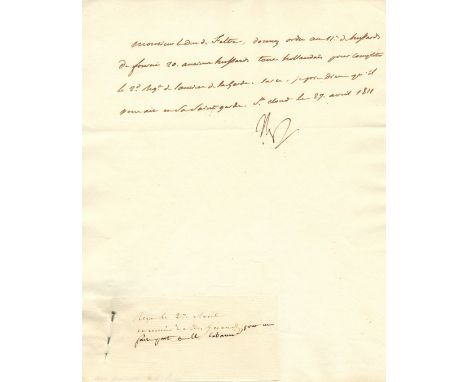 Monsieur le duc de Feltre, donnez ordre au 11e de hussards
de fournir 20. anciens hussards tous hollandais pour compléter
le 2e Regt. de lanciers de la Garde. Sur ce, je prie Dieu qu'il
vous ait en sa sainte garde. St. Cloud le 27 avril 1811
Np
Reçu le 27 Avril